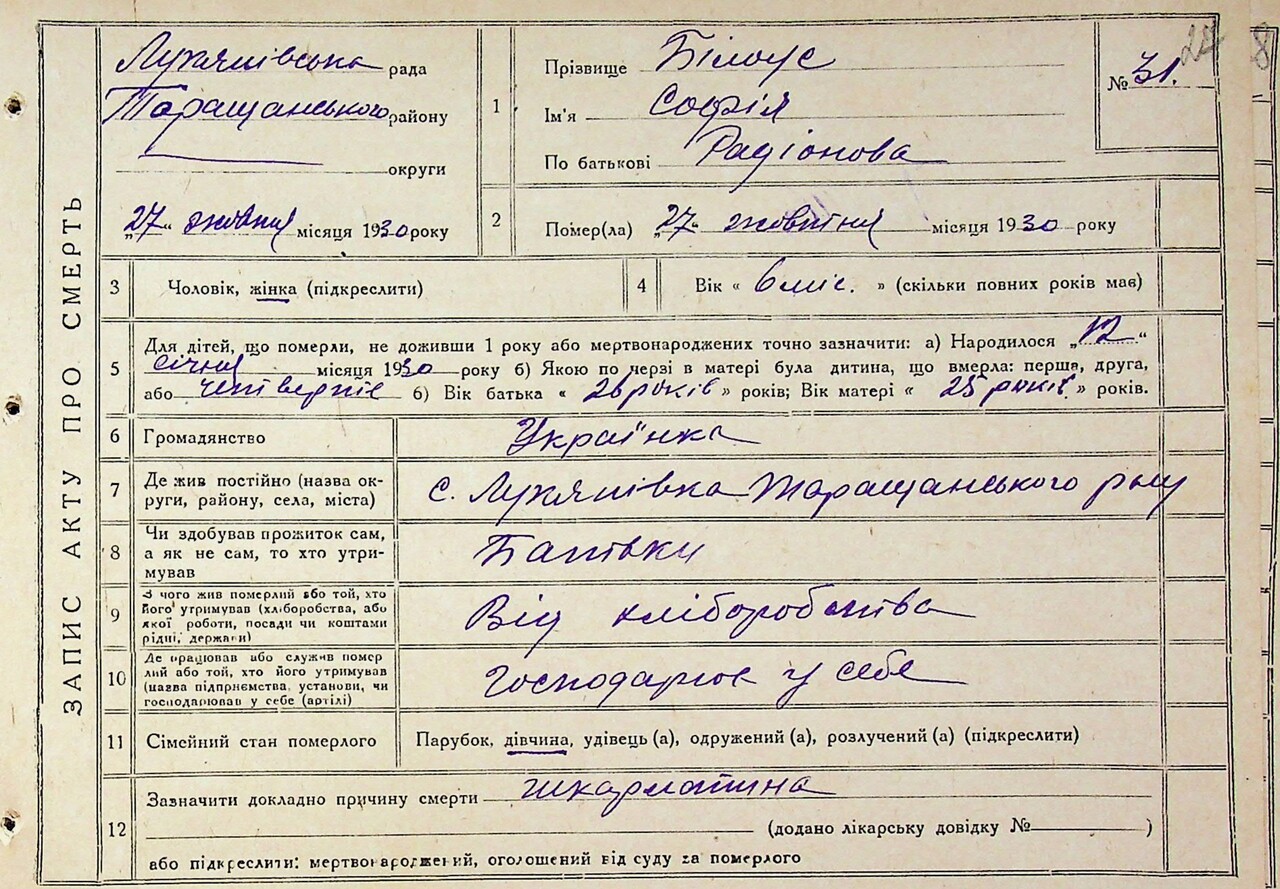 ЗАПИС АКТУ ПРО СМЕРТЬ
Лукянівська рада
Таращанського району
округи
„27“ жовтня місяця 1930 року
1
Прізвище Білоус
Ім'я Софія
По батькові Радіонова
№ 31.
28
8
2
Помер(ла) „27“ жовтня місяця 1930 року
3
Чоловік, жінка (підкреслити)
4
Вік « 6 міс. » (скільки повних років має)
5
Для дітей, що померли, не доживши 1 року або мертвонароджених точно зазначити: а) Народилося „12“
січня місяця 1930 року б) Якою по черзі в матері була дитина, що вмерла: перша, друга,
або четверте б) Вік батька « 26 років » років; Вік матері « 25 років » років.
6
Громадянство
Украінка
7
Де жив постійно (назва ок-
руги, району, села, міста)
с. Лукянівка Таращанського р-ну
8
Чи здобував прожиток сам,
а як не сам, то хто утри-
мував
Батьки
9
З чого жив померлий або той, хто
його утримував (хліборобства, або
якої роботи, посади чи коштами
рідні, держави)
Від хліборобства
10
Де працював або служив помер
лий або той, хто його утримував
(назва підприємства, установи, чи
господарював у себе (артілі)
Господарює у себе
11
Сімейний стан померлого
Парубок, дівчина, удівець (а), одружений (а), розлучений (а) (підкреслити)
12
Зазначити докладно причину смерти шкарлатина
(додано лікарську довідку № )
або підкреслити: мертвонароджений, оголошений від суду за померлого